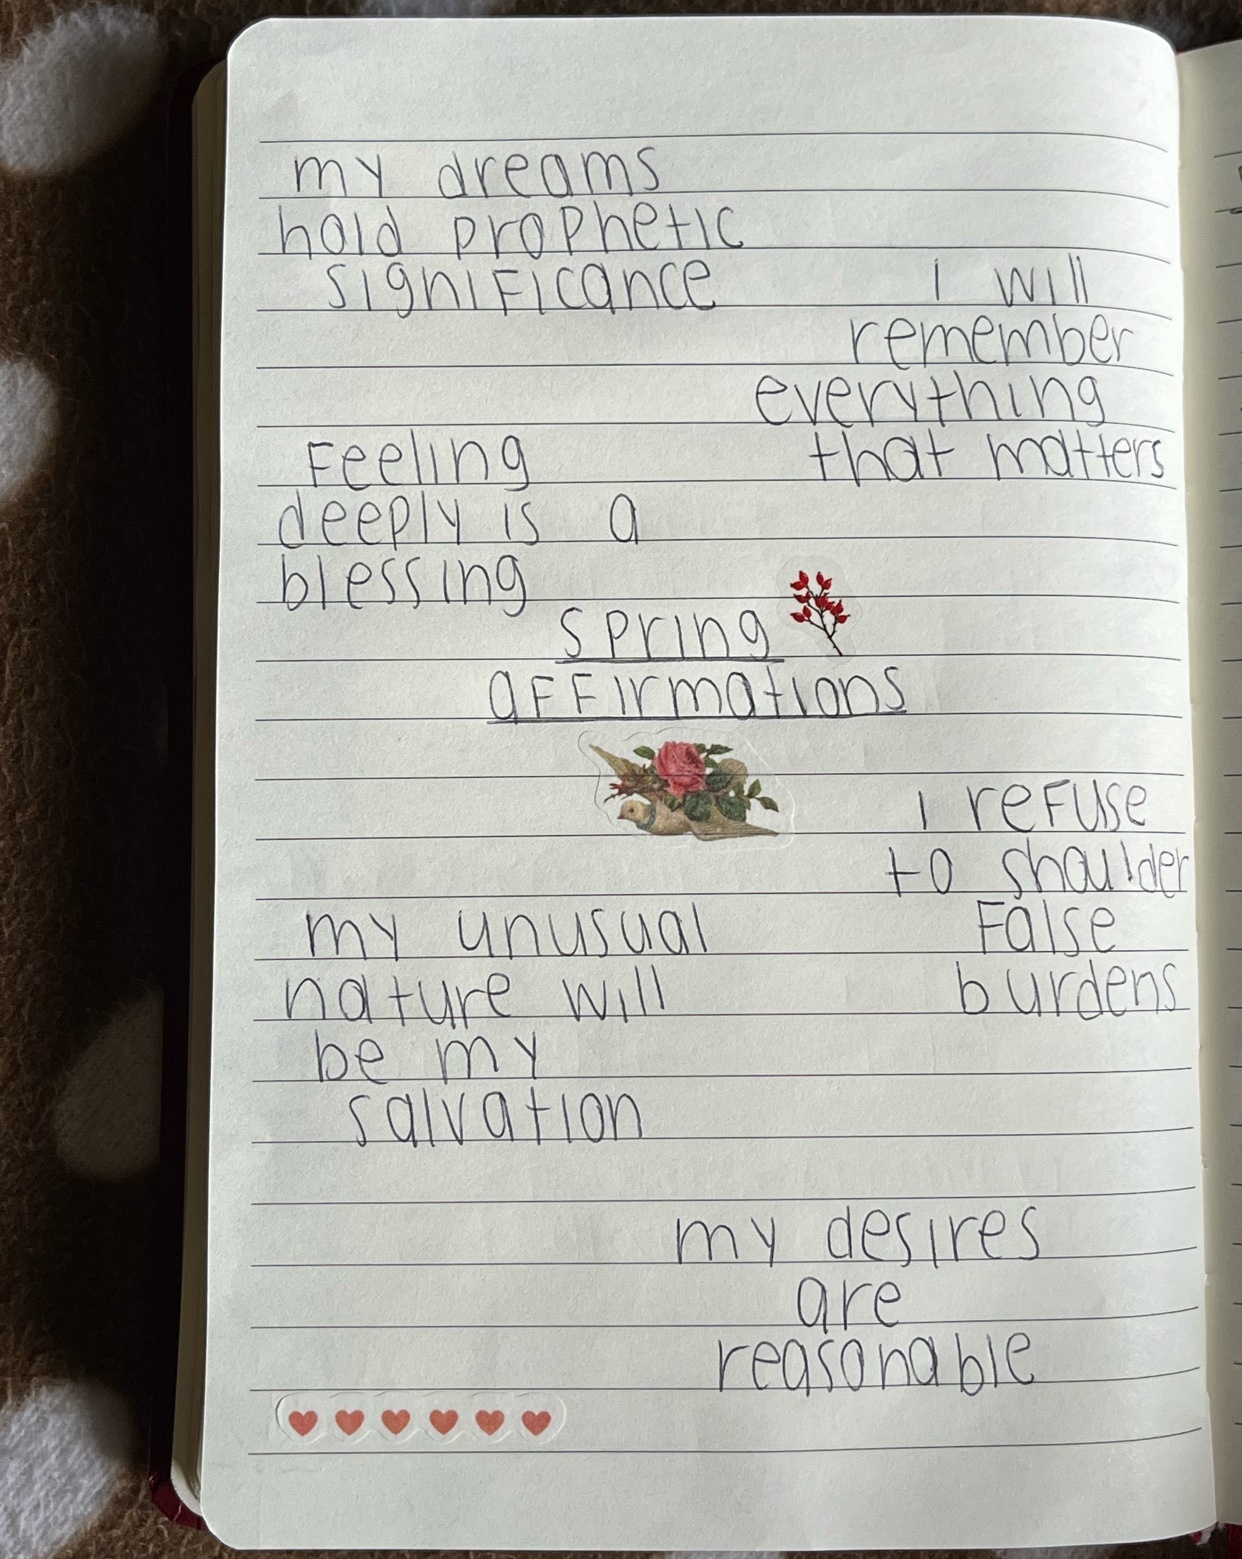 my dreams
hold prophetic
significance
I will
remember
everything
that matters
Feeling
deeply is a
blessing
spring
affirmations
I refuse
to shoulder
False
burdens
my unusual
nature will
be my
salvation
my desires
are
reasonable